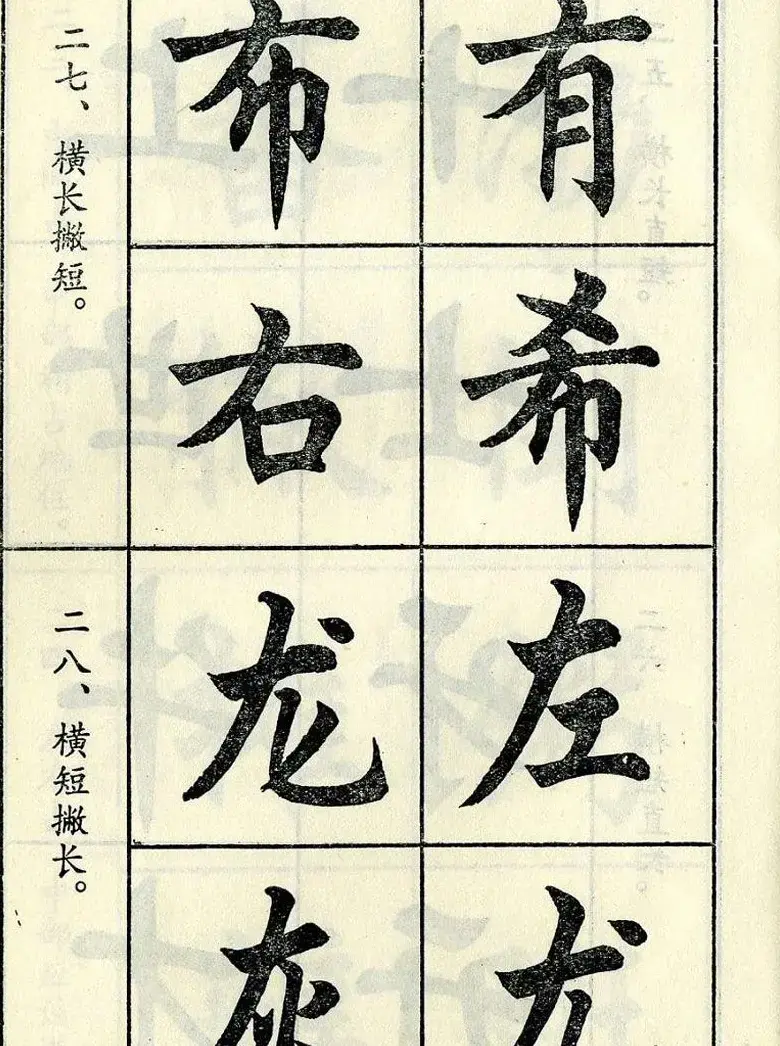 二七、横长撇短。
布 有
右 希
二八、横短撇长。
龙 左
灰 尤